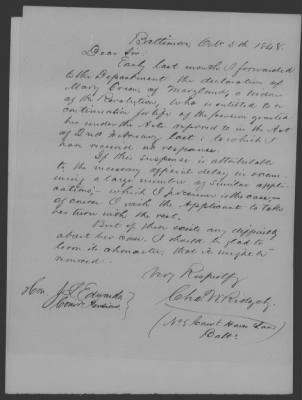 Baltimore Oct. 5th 1848.
Dear Sir
Early last month I forwarded
to the Department the declaration of
Mary Orem of Maryland, a widow
of the Revolution, who is entitled to a
continuation for life of the pension granted
her under the Acts referred to in the Act
of 2nd February last: to which I
have received no response.
If this suspense is attributable
to the necessary official delay in exam-
ining a large number of similar appli-
cations, which I presume is the case,
of course I wish the Applicant to take
her turn with the rest.
But if there exists any difficulty
about her case, I should be glad to
learn its character, that it might be
removed.
Very Respectfy
Chs W Ridgely
Hon. J. L. Edwards
Comr. Pensions
(No 5 Court House Lane)
Balto.